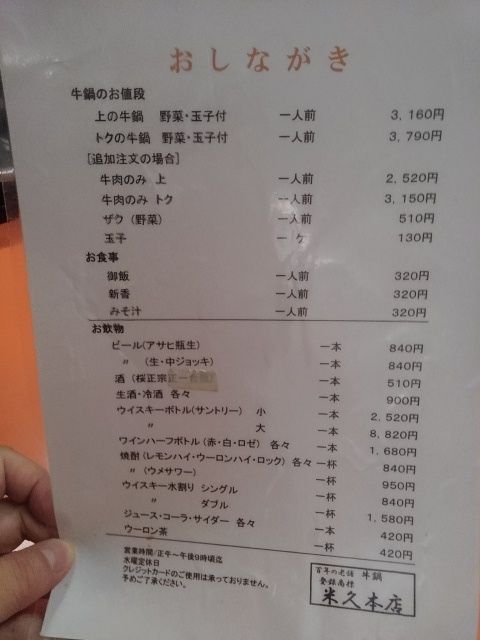 おしながき
牛鍋のお値段
上の牛鍋 野菜・玉子付 一人前 3,160円
トクの牛鍋 野菜・玉子付 一人前 3,790円
[追加注文の場合]
牛肉のみ 上 一人前 2,520円
牛肉のみ トク 一人前 3,150円
ザク(野菜) 一人前 510円
玉子 一ケ 130円
お食事
御飯 一人前 320円
新香 一人前 320円
みそ汁 一人前 320円
お飲物
ビール(アサヒ瓶生) 一本 840円
〃 (生・中ジョッキ) 一本 840円
酒 (桜正宗 一本 510円
生酒・冷酒 各々 一本 900円
ウイスキーボトル(サントリー) 小 一本 2,520円
〃 大 一本 8,820円
ワインハーフボトル(赤・白・ロゼ) 各々 一本 1,680円
焼酎(レモンハイ・ウーロンハイ・ロック) 各々 一杯 840円
〃 (ウメサワー) 一杯 950円
ウイスキー水割り シングル 一杯 840円
〃 ダブル 一杯 1,580円
ジュース・コーラ・サイダー 各々 一本 420円
ウーロン茶 一杯 420円
営業時間/正午〜午後9時頃迄
水曜定休日
クレジットカードのご使用は承っておりません。
予めご了承ください。
百年の老舗 牛鍋
登録商標
米久本店